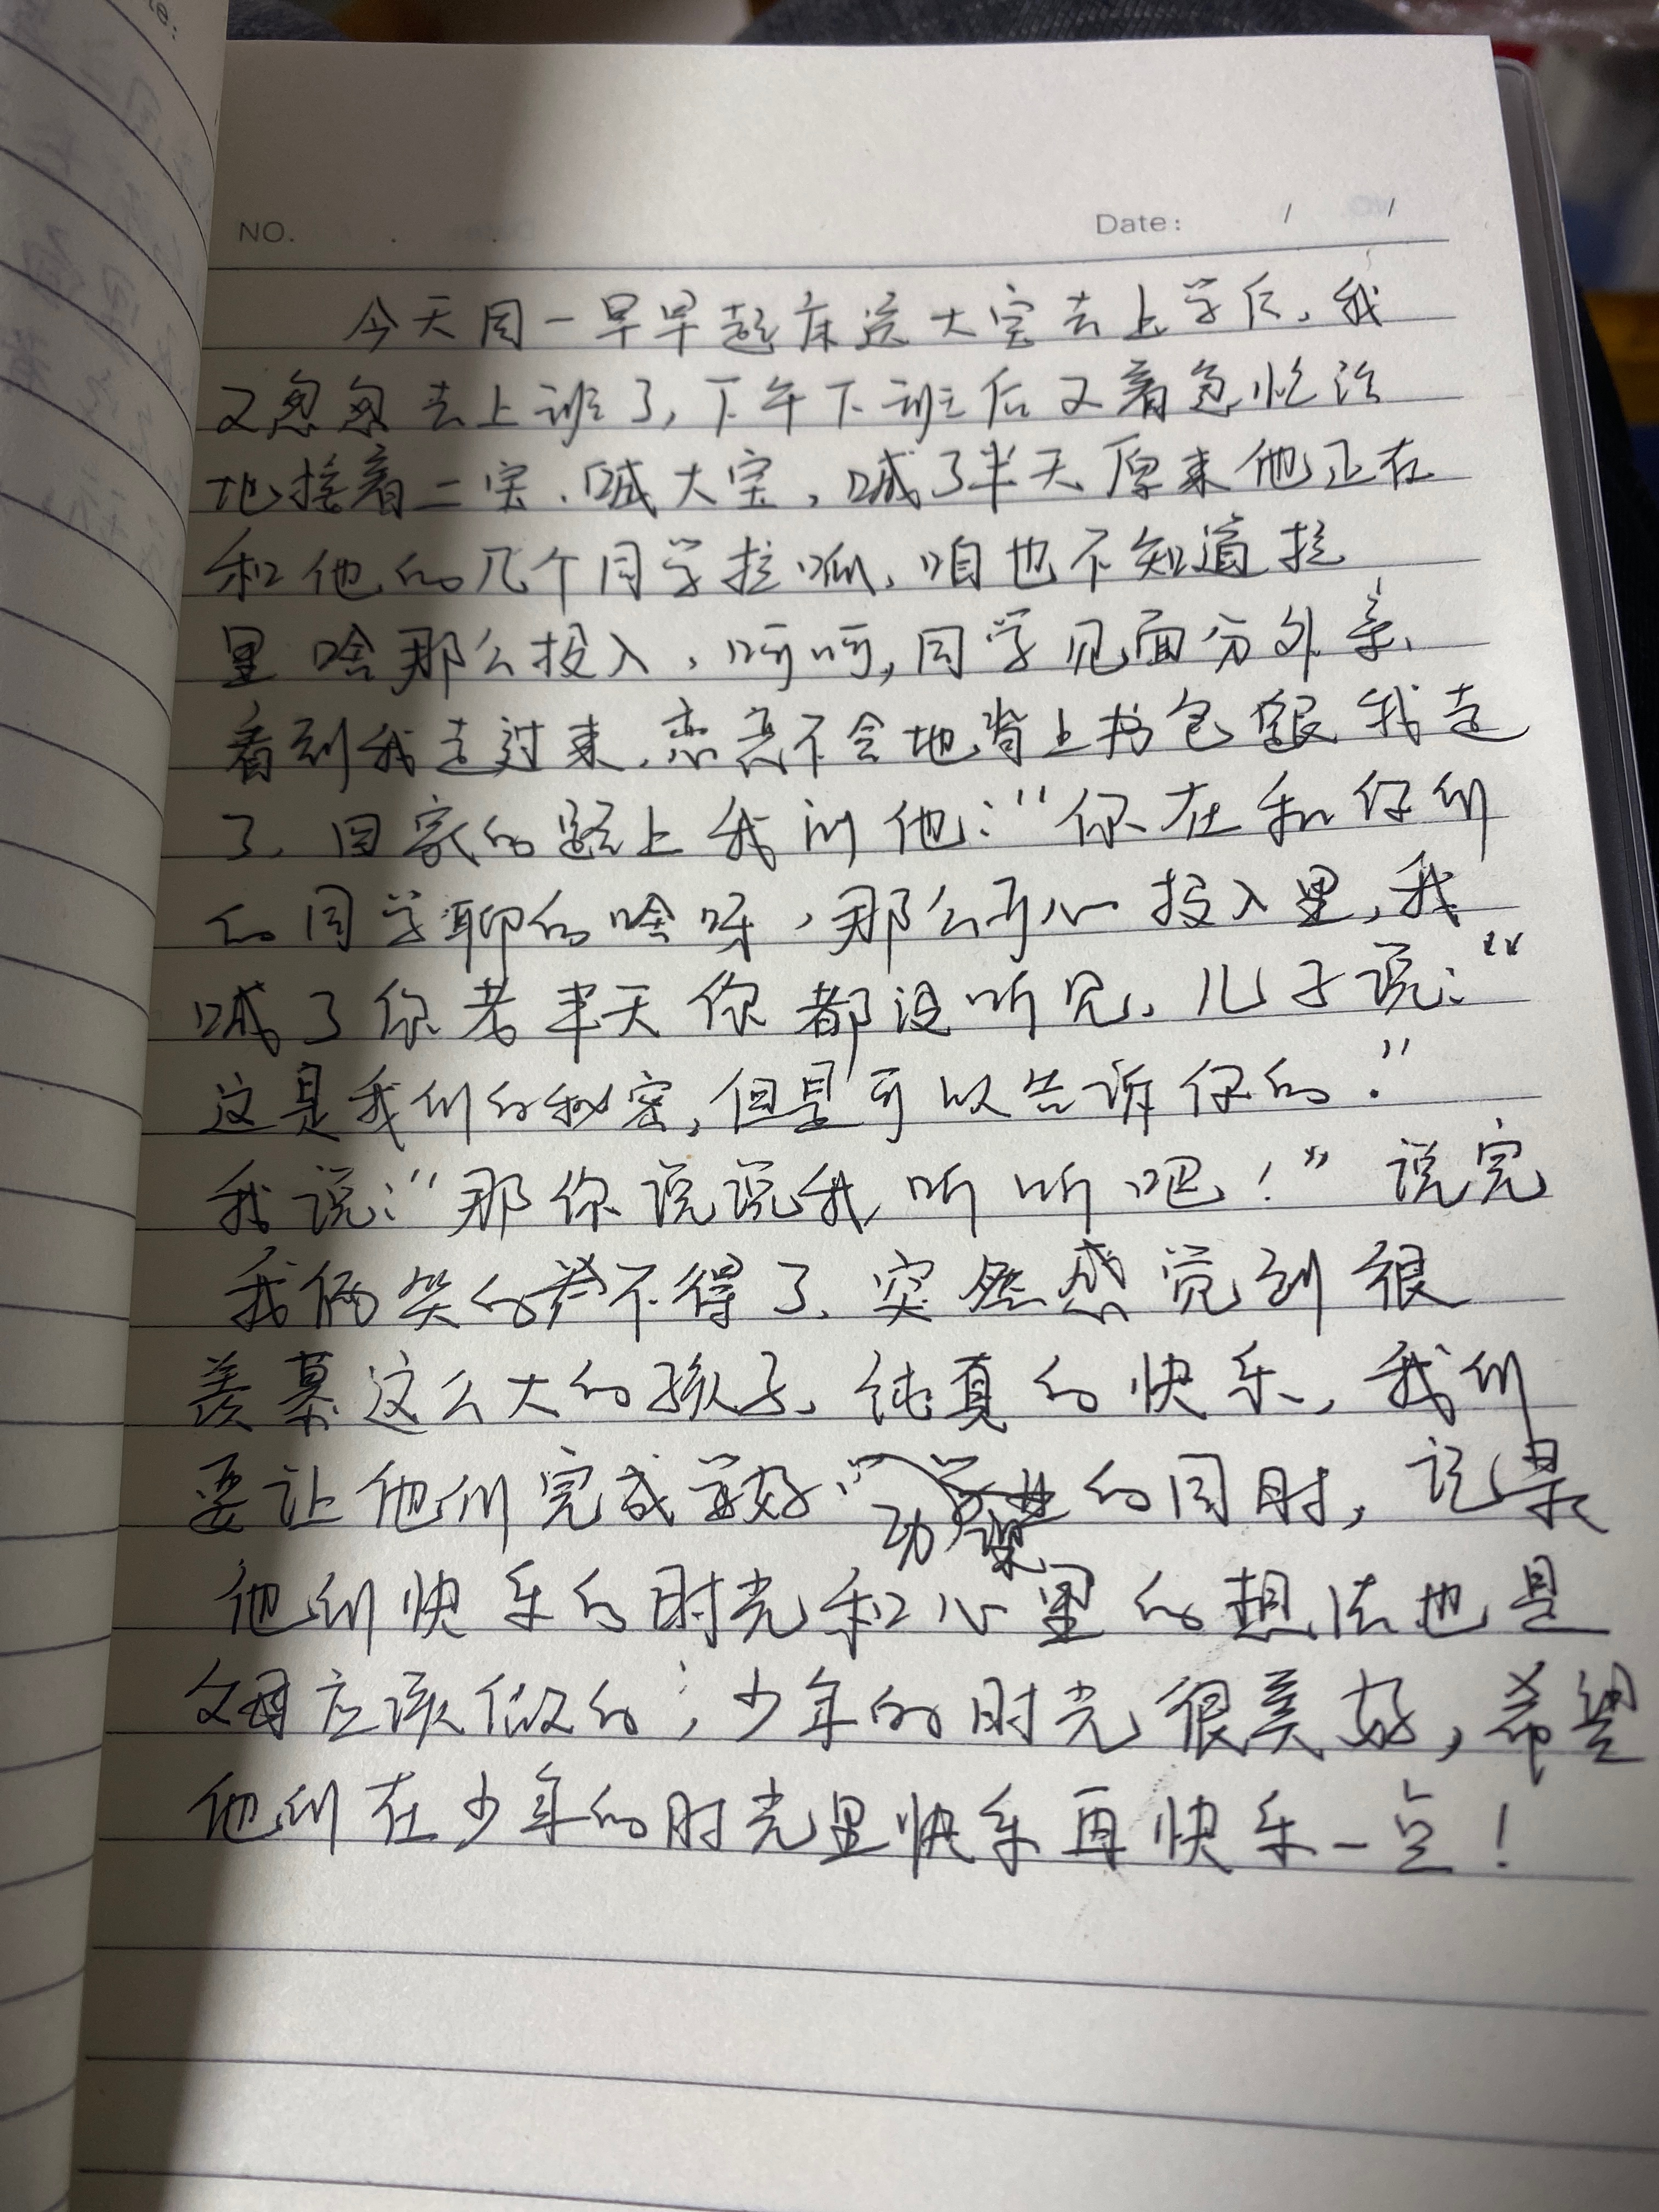 NO.
Date: / /
今天周一早早起床送大宝去上学后，我
又忽忽去上班了，下午下班后又着急忙活
地接着二宝、喊大宝，喊了半天原来他正在
和他的几个同学拉呱，咱也不知道拉
里啥那么投入，呵呵，同学见面分外亲、
看到我走过来，恋恋不舍地背上书包跟我走
了。回家的路上我问他：“你在和你们
的同学聊的啥呀，那么开心投入里，我
喊了你老半天你都没听见，儿子说：“
这是我们的秘密，但是可以告诉你的．”
我说：“那你说说我听听吧！”说完
我俩笑的不得了、突然感觉到很
羡慕这么大的孩子，纯真的快乐，我们
要让他们完成学好的同时，记录
功课
他们快乐的时光和心里的想法也是
父母应该做的；少年的时光很美好，希望
他们在少年的时光里快乐再快乐一点！